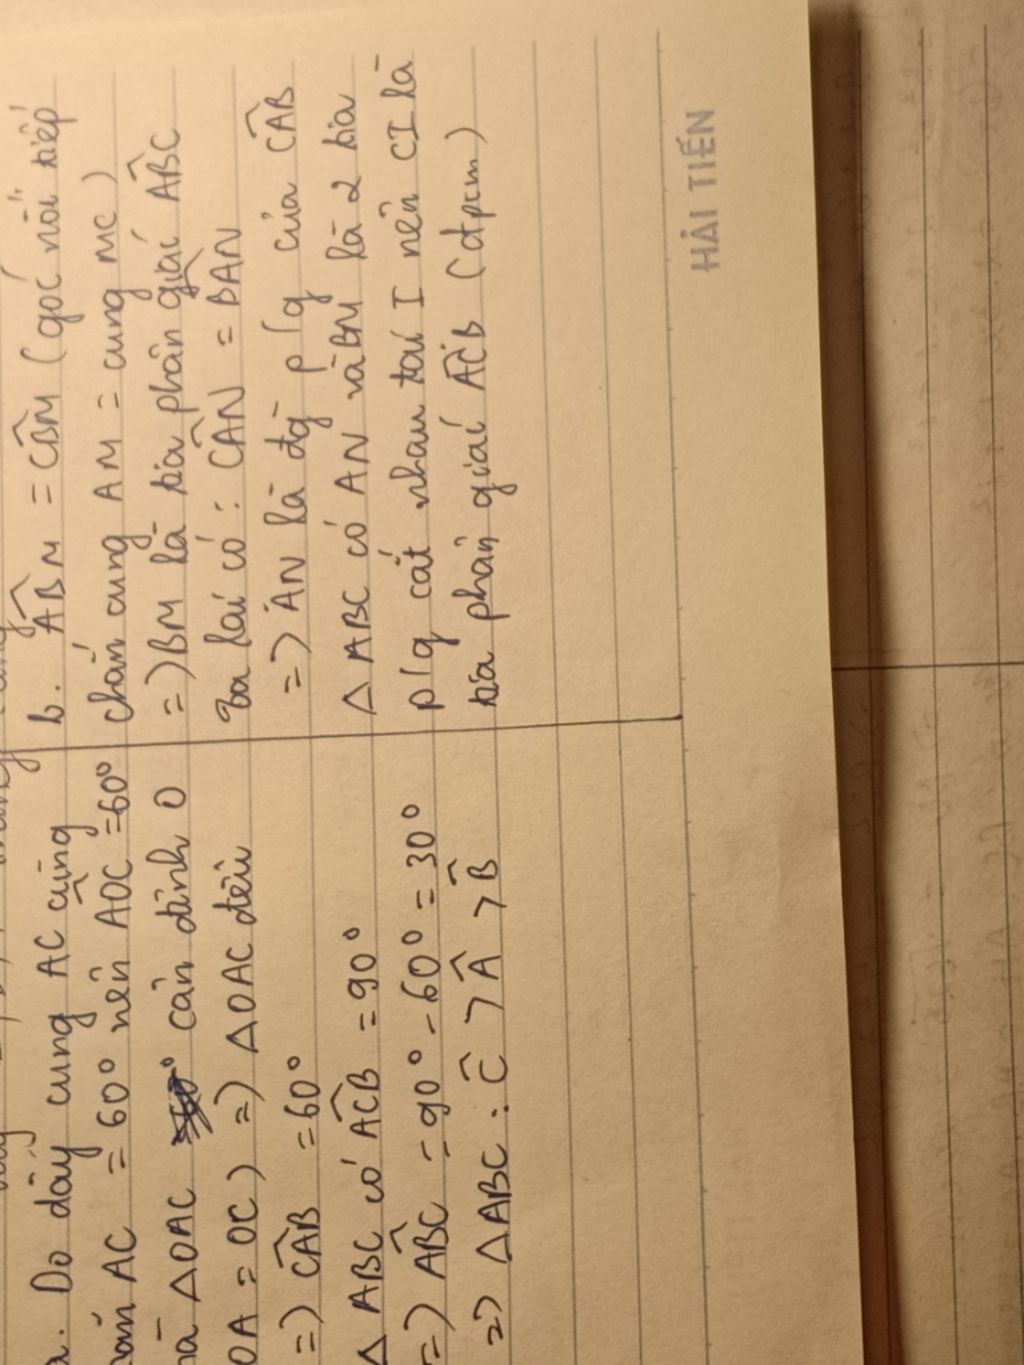 a. Do dây cung AC cung
chắn AC = 60° nên AOC = 60°
mà △OAC cân đỉnh O
OA = OC) => △OAC đều
=) CAB = 60°
△ ABC có ACB = 90°
=) ABC = 90° - 60° = 30°
=) △ABC : C > A > B
b. ABM = CBM (góc nối tiếp
chắn cung AM = cung MC)
=) BM là tia phân giác ABC
Ta lại có : CAN = BAN
=) AN là đg p/g của CAB
△ ABC có AN và BM là 2 tia
p/g cắt nhau tại I nên CI là
tia phân giác ACB (đpcm)
HẢI TIẾN